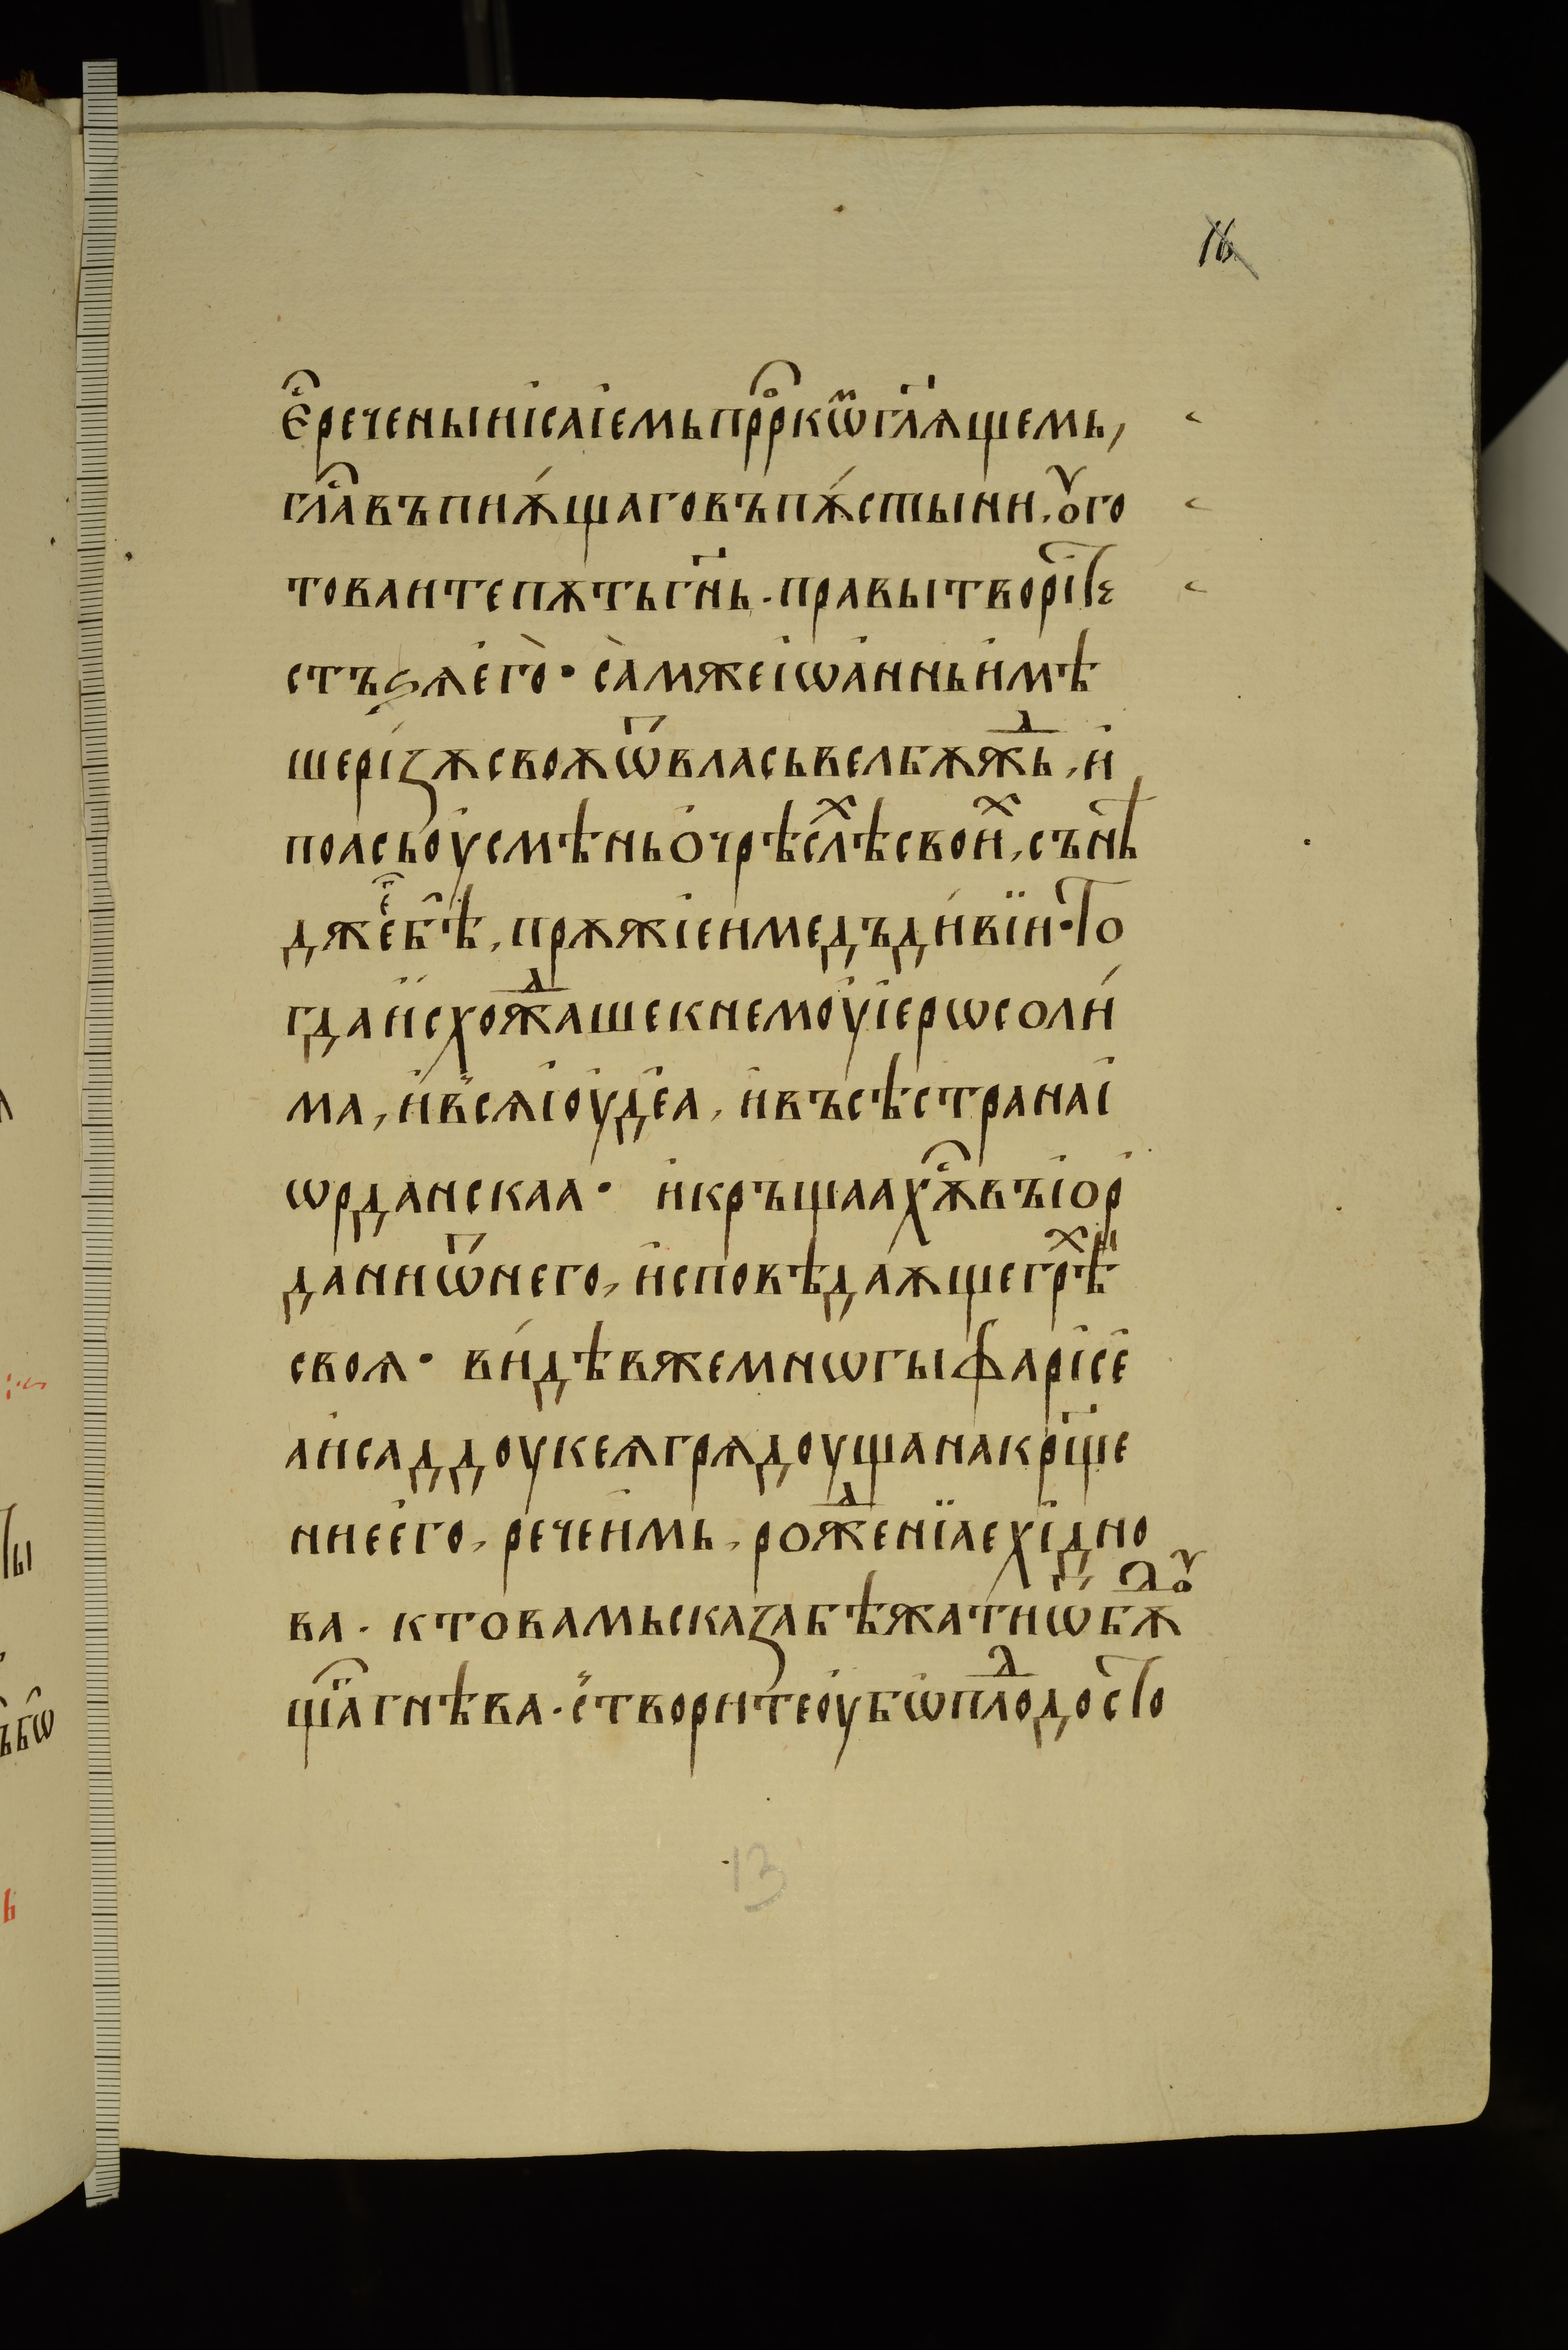 16
є҆ⷭ҇ реченыи і҆саіемь прⷪ҇ркѡⷨ гл҃ѫщемь,
глаⷭ҇ въпиѫ́щаго въ пѫ́стыни, ꙋго
товаите пѫть гнⷭ҇ь. правы творіⷮе
стъѕѧ і҆е҆гѡ̀· са̀мже іѡаннь и҆мѣ
ше рі́зѫ своѫ ѿ влась велбѫжⷣь, и҆
поась оу҆смѣнь ѻ҆ чрѣслѣⷯ своиⷯ, сънѣ
джеⷭ҇ бѣ, прѫжіе и медъ ди́вїи· То
гда и҆схожⷣаше к немоу҆ і҆ерѡсоли́
ма, и҆ в̾сѧ і҆оудеа, и҆ въсѣ страна і҆
ѡрданскаа· и҆ кръщаахѫⷭ҇ въ і҆ор
дани ѿ него, и҆споквѣдаѫще грѣⷯ
своѧ· ви́дѣвже мнѡгы фарісе
а҆ и саддоукеѧ грѧдоуща на крⷭ҇ще
ніе е҆го, рече и҆мь, рожⷣенїа ехідно
ва. кто вамь сказа бѣжати ѿ бѫⷣꙋ
щаⷢ гнѣва. с̾творите оу҆бѡ плⷣодостⷪ
13